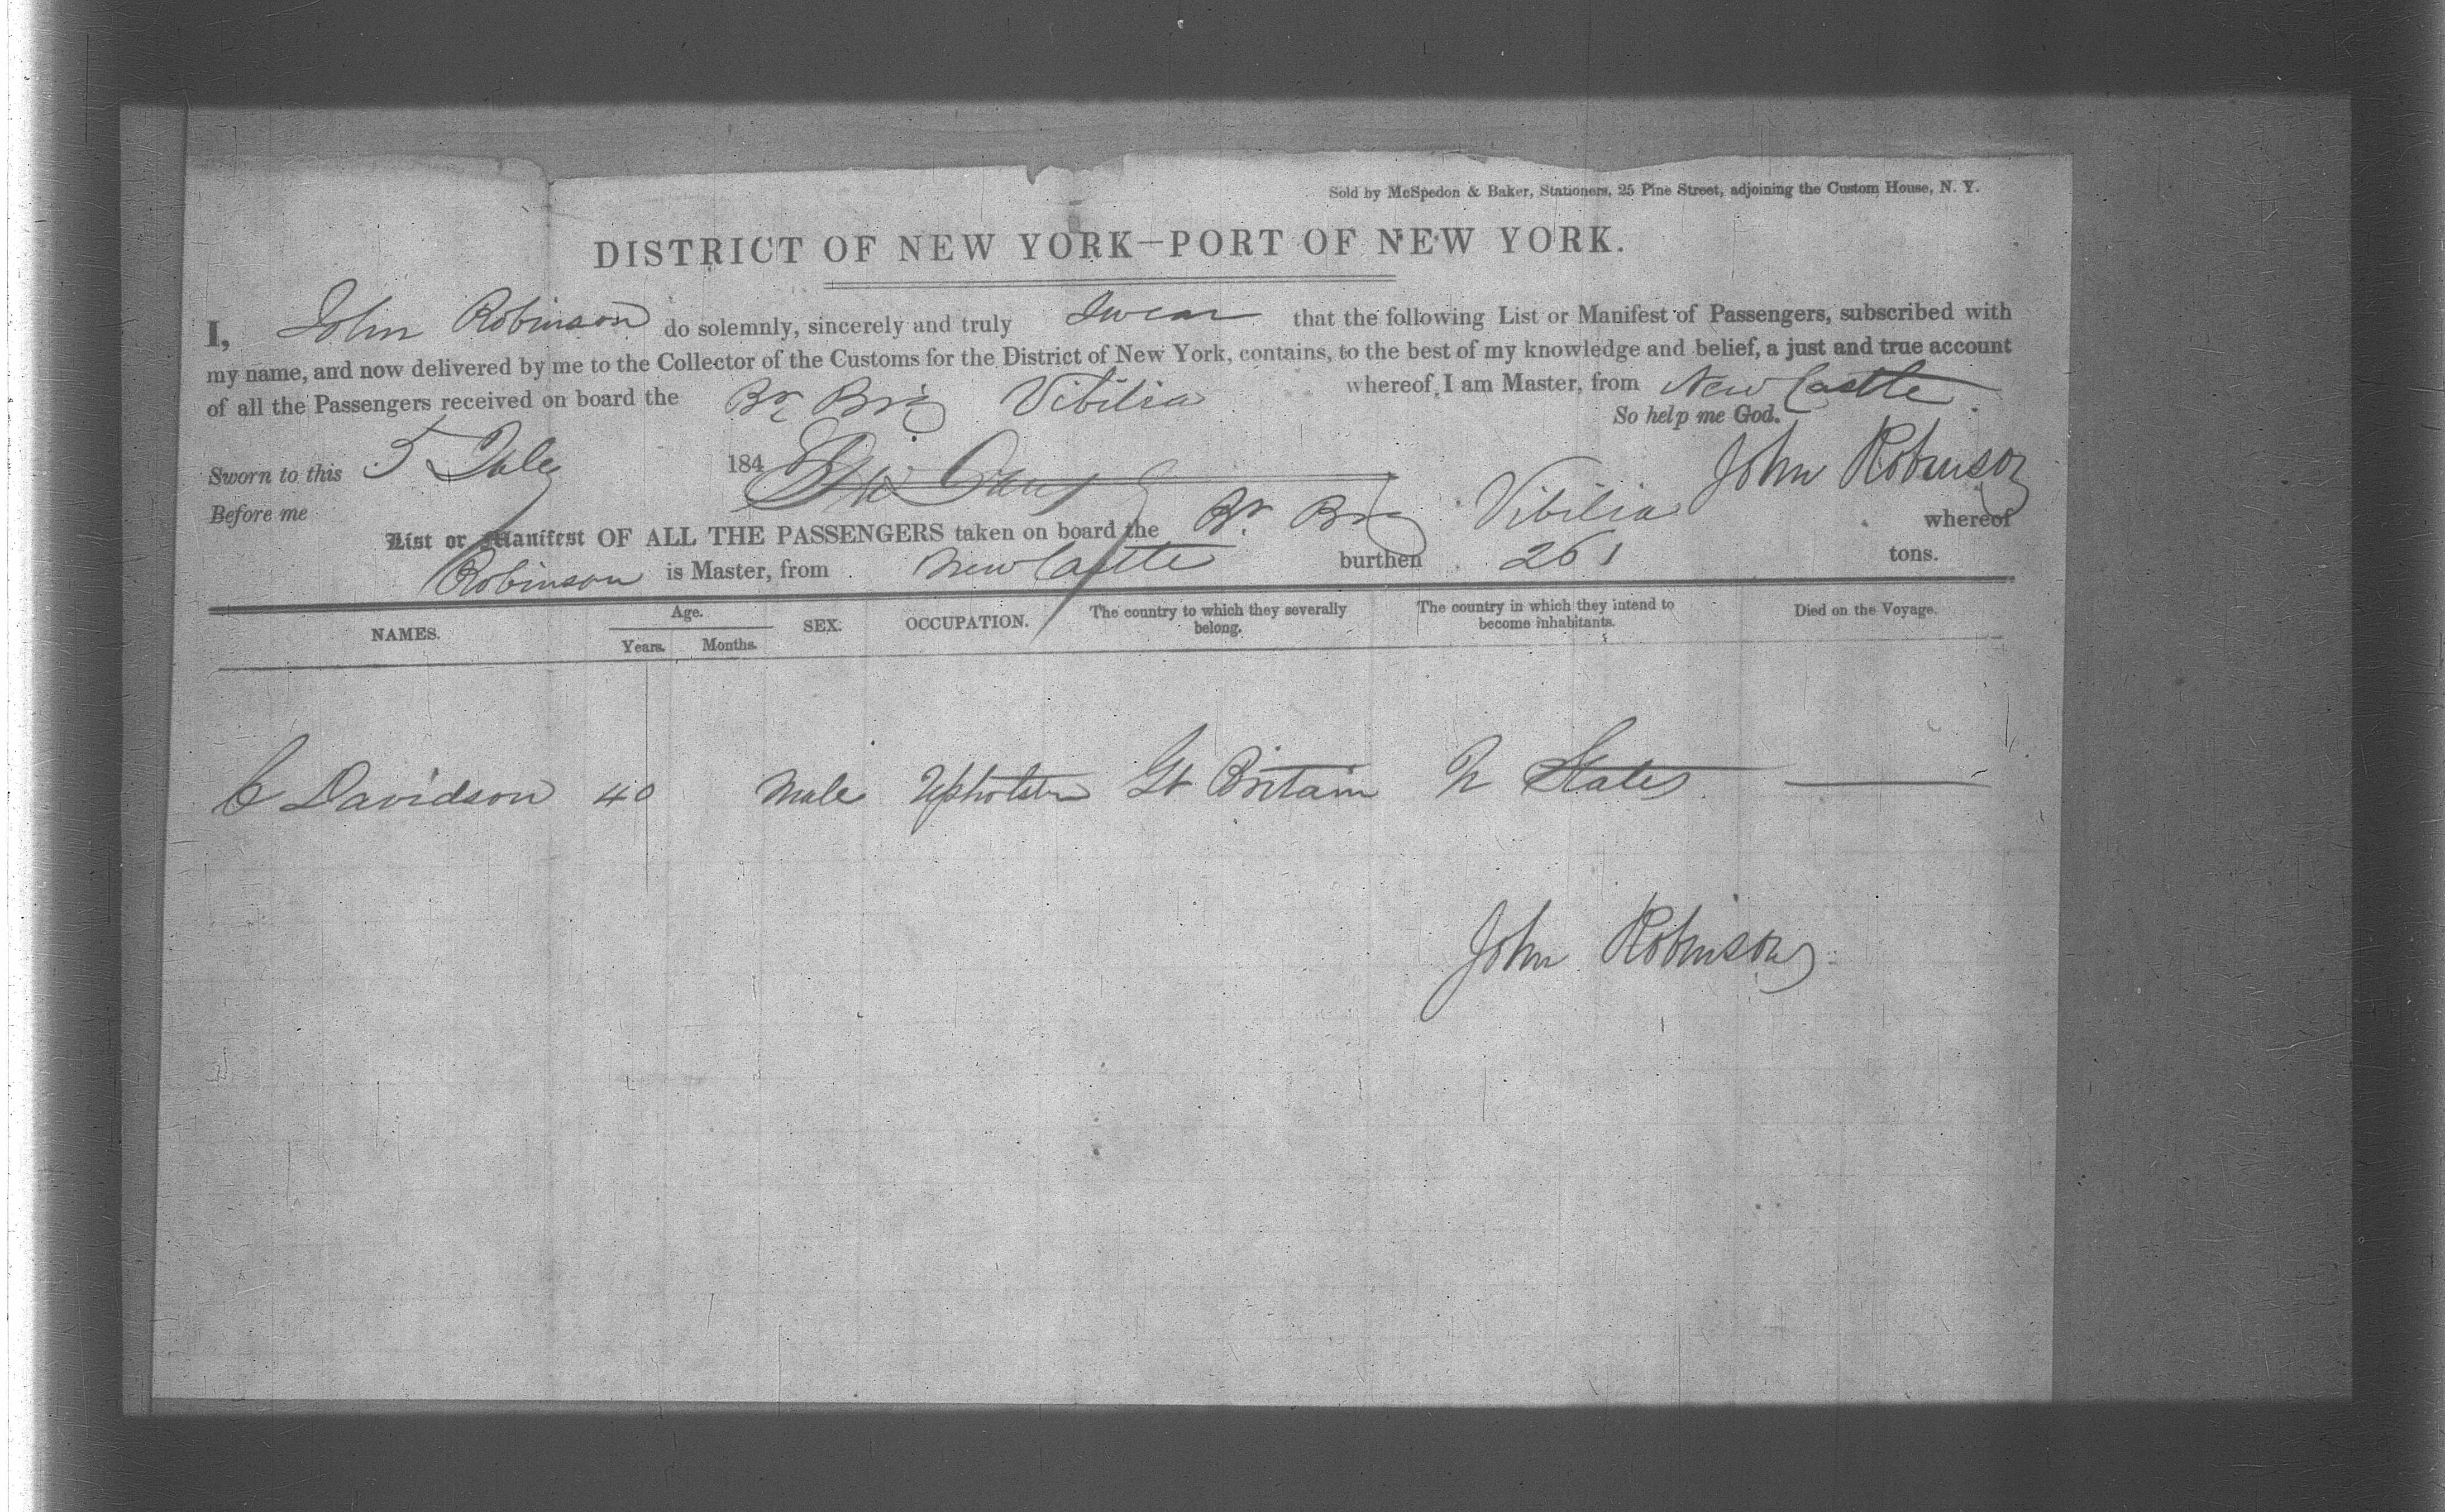 Sold by McSpedon & Baker, Stationers, 25 Pine Street, adjoining the Custom House, N. Y.
DISTRICT OF NEW YORK—PORT OF NEW YORK.
I, John Robinson do solemnly, sincerely and truly Swear that the following List or Manifest of Passengers, subscribed with
my name, and now delivered by me to the Collector of the Customs for the District of New York, contains, to the best of my knowledge and belief, a just and true account
of all the Passengers received on board the Br Brig Vibilia whereof I am Master, from New Castle
So help me God.
Sworn to this 5 July 184 John Robinson
Before me
List or Manifest OF ALL THE PASSENGERS taken on board the Br Brig Vibilia whereof
Robinson is Master, from New Castle burthen 261 tons.
NAMES. Age. Years. Months. SEX. OCCUPATION. The country to which they severally belong. The country in which they intend to become inhabitants. Died on the Voyage.
C Davidson 40 Male Upholster Gt Britain U States
John Robinson